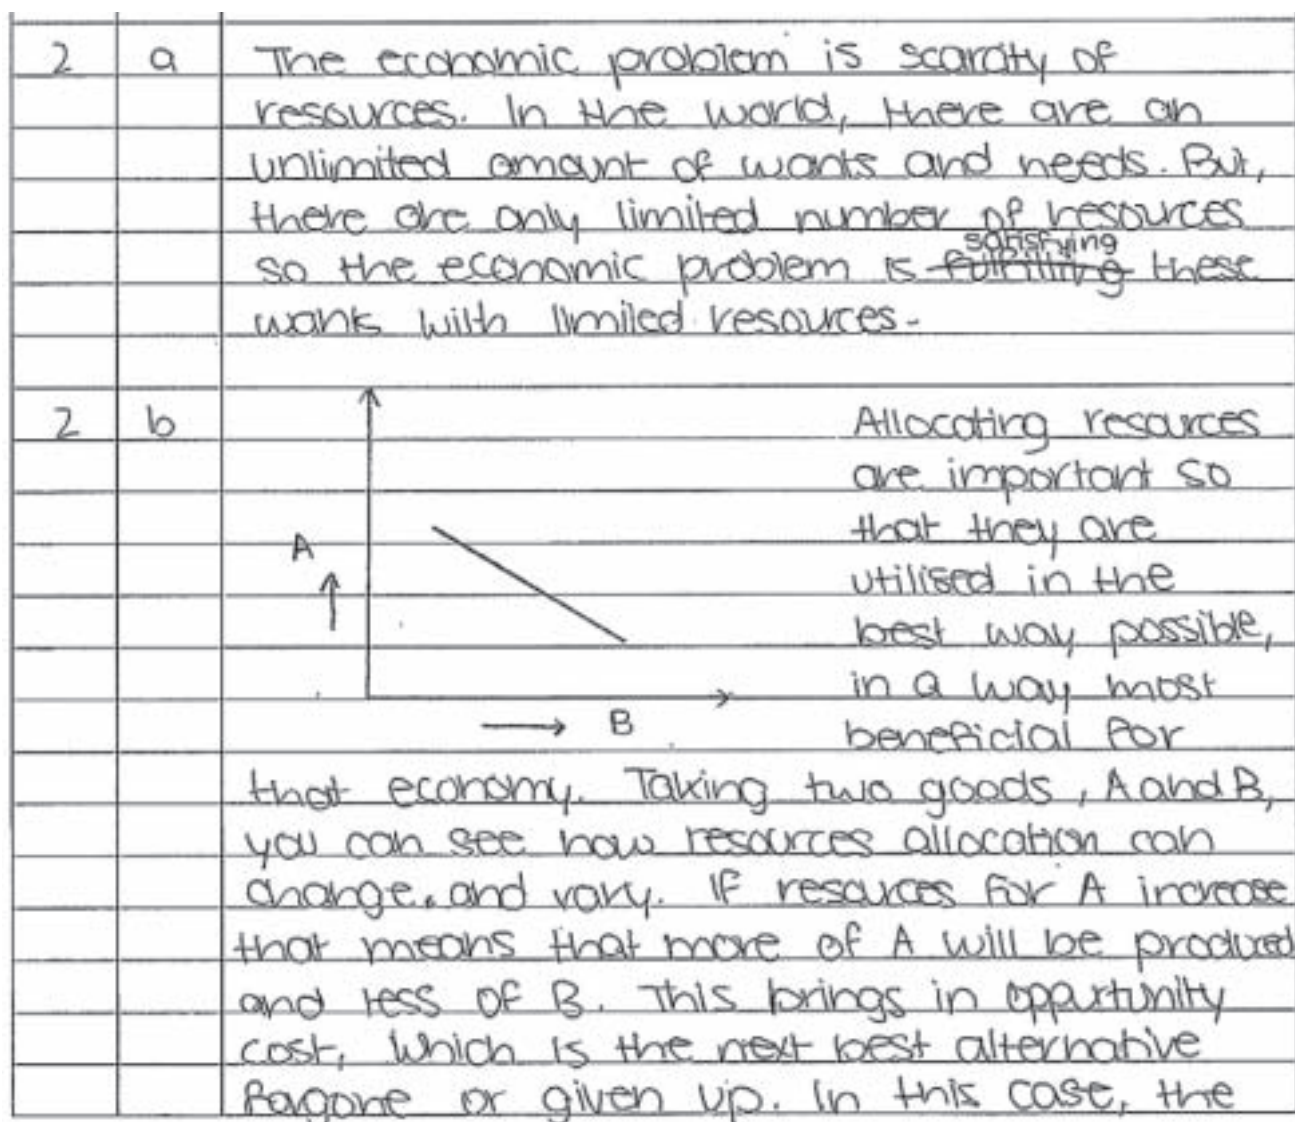 2 a The economic problem is scarcity of
resources. In the world, there are an
unlimited amount of wants and needs. But,
there are only limited number of resources
satisfying
so the economic problem is fulfilling these
wants with limited resources.
2 b Allocating resources
are important so
that they are
A
utilised in the
best way possible,
in a way most
B
beneficial for
that economy. Taking two goods, A and B,
you can see how resources allocation can
change, and vary. If resources for A increase
that means that more of A will be produced
and less of B. This brings in opportunity
cost, which is the next best alternative
fagone or given up. In this case, the